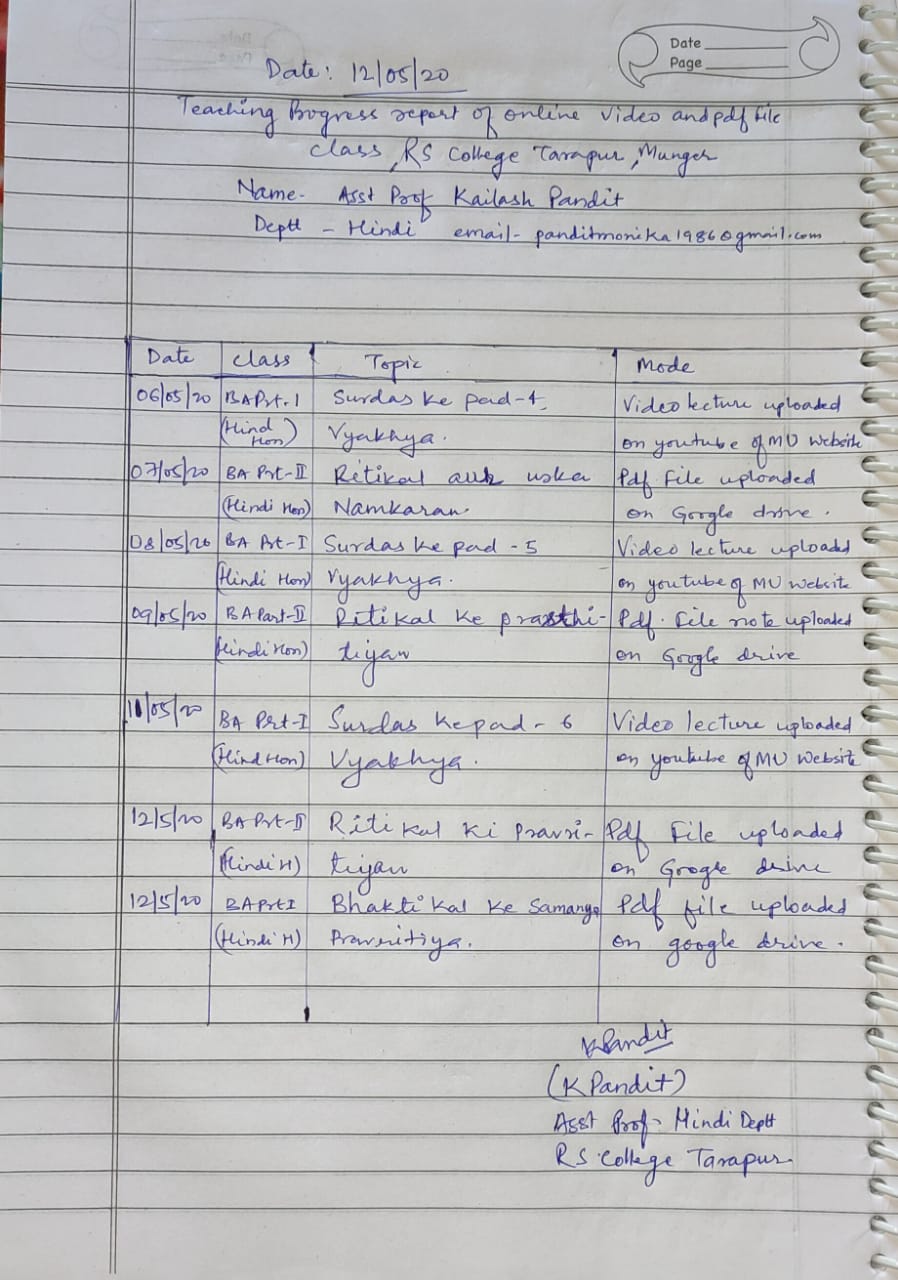 Date
Page
Date: 12/05/20
Teaching Progress report of online video and pdf file
class, RS College Tarapur, Munger
Name- Asst Prof Kailash Pandit
Deptt - Hindi email- panditmonika1986@gmail.com
Date Class Topic Mode
06/05/20 BA Prt. I Surdas ke pad-4 Video lecture uploaded
(Hind Hon) Vyakhya. on youtube of MU Website
07/05/20 BA Prt-II Ritikal aur uska Pdf File uploaded
(Hindi Hon) Namkaran. on Google drive.
08/05/20 BA Prt-I Surdas ke pad -5 Video lecture uploaded
(Hindi Hon) Vyakhya. on youtube of MU Website
09/05/20 BA Part-II Ritikal ke prasthi- Pdf. File note uploaded
(Hindi Hon) tiyan on Google drive
11/05/20 BA Prt-I Surdas ke pad - 6 Video lecture uploaded
(Hind Hon) Vyakhya. on youtube of MU Website
12/5/20 BA Prt-II Riti kal ki pravri- Pdf File uploaded
(Hindi H) tiyan on Google drive
12/5/20 BA Prt I Bhakti kal ke Samanya Pdf file uploaded
(Hindi H) Pravritiya. on google drive.
KPandit
(K Pandit)
Asst Prof- Hindi Deptt
RS College Tarapur